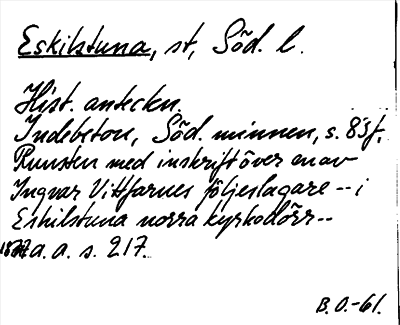 Eskilstuna, st, Söd. l.
Hist. anteckn.
Indebetou, Söd. minnen, s. 83f,
Runsten med inskrift över en av
Ingvar Vittfarnes följeslagare -- i
Eskilstuna norra kyrkodörr --
a. a. s. 217.
B. O. -61.